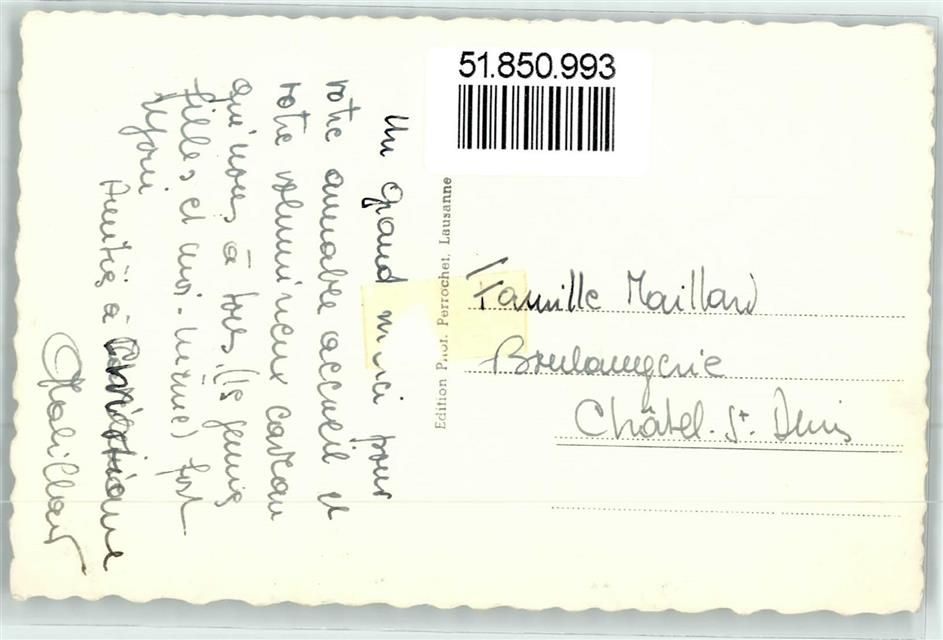 51.850.993
Un grand merci pour
votre aimable accueil et
votre volumineux cadeau
qui nous a tous (les jeunes
filles et moi-même) fort
réjoui
Amitiés à Christiane
Edition Phot. Perrochet, Lausanne
Famille Maillard
Boulangerie
Châtel-St-Denis